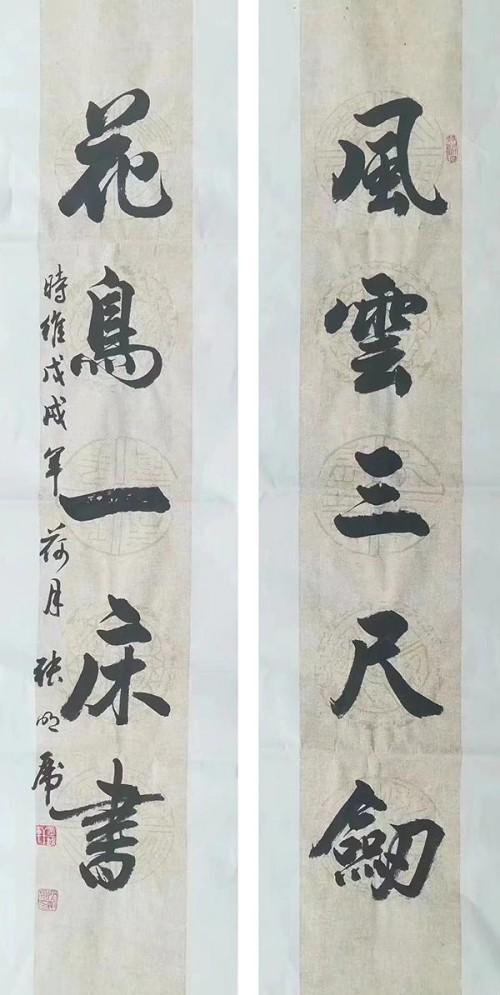 風雲三尺劔
花鳥一床書
時維戊戌年荷月張明